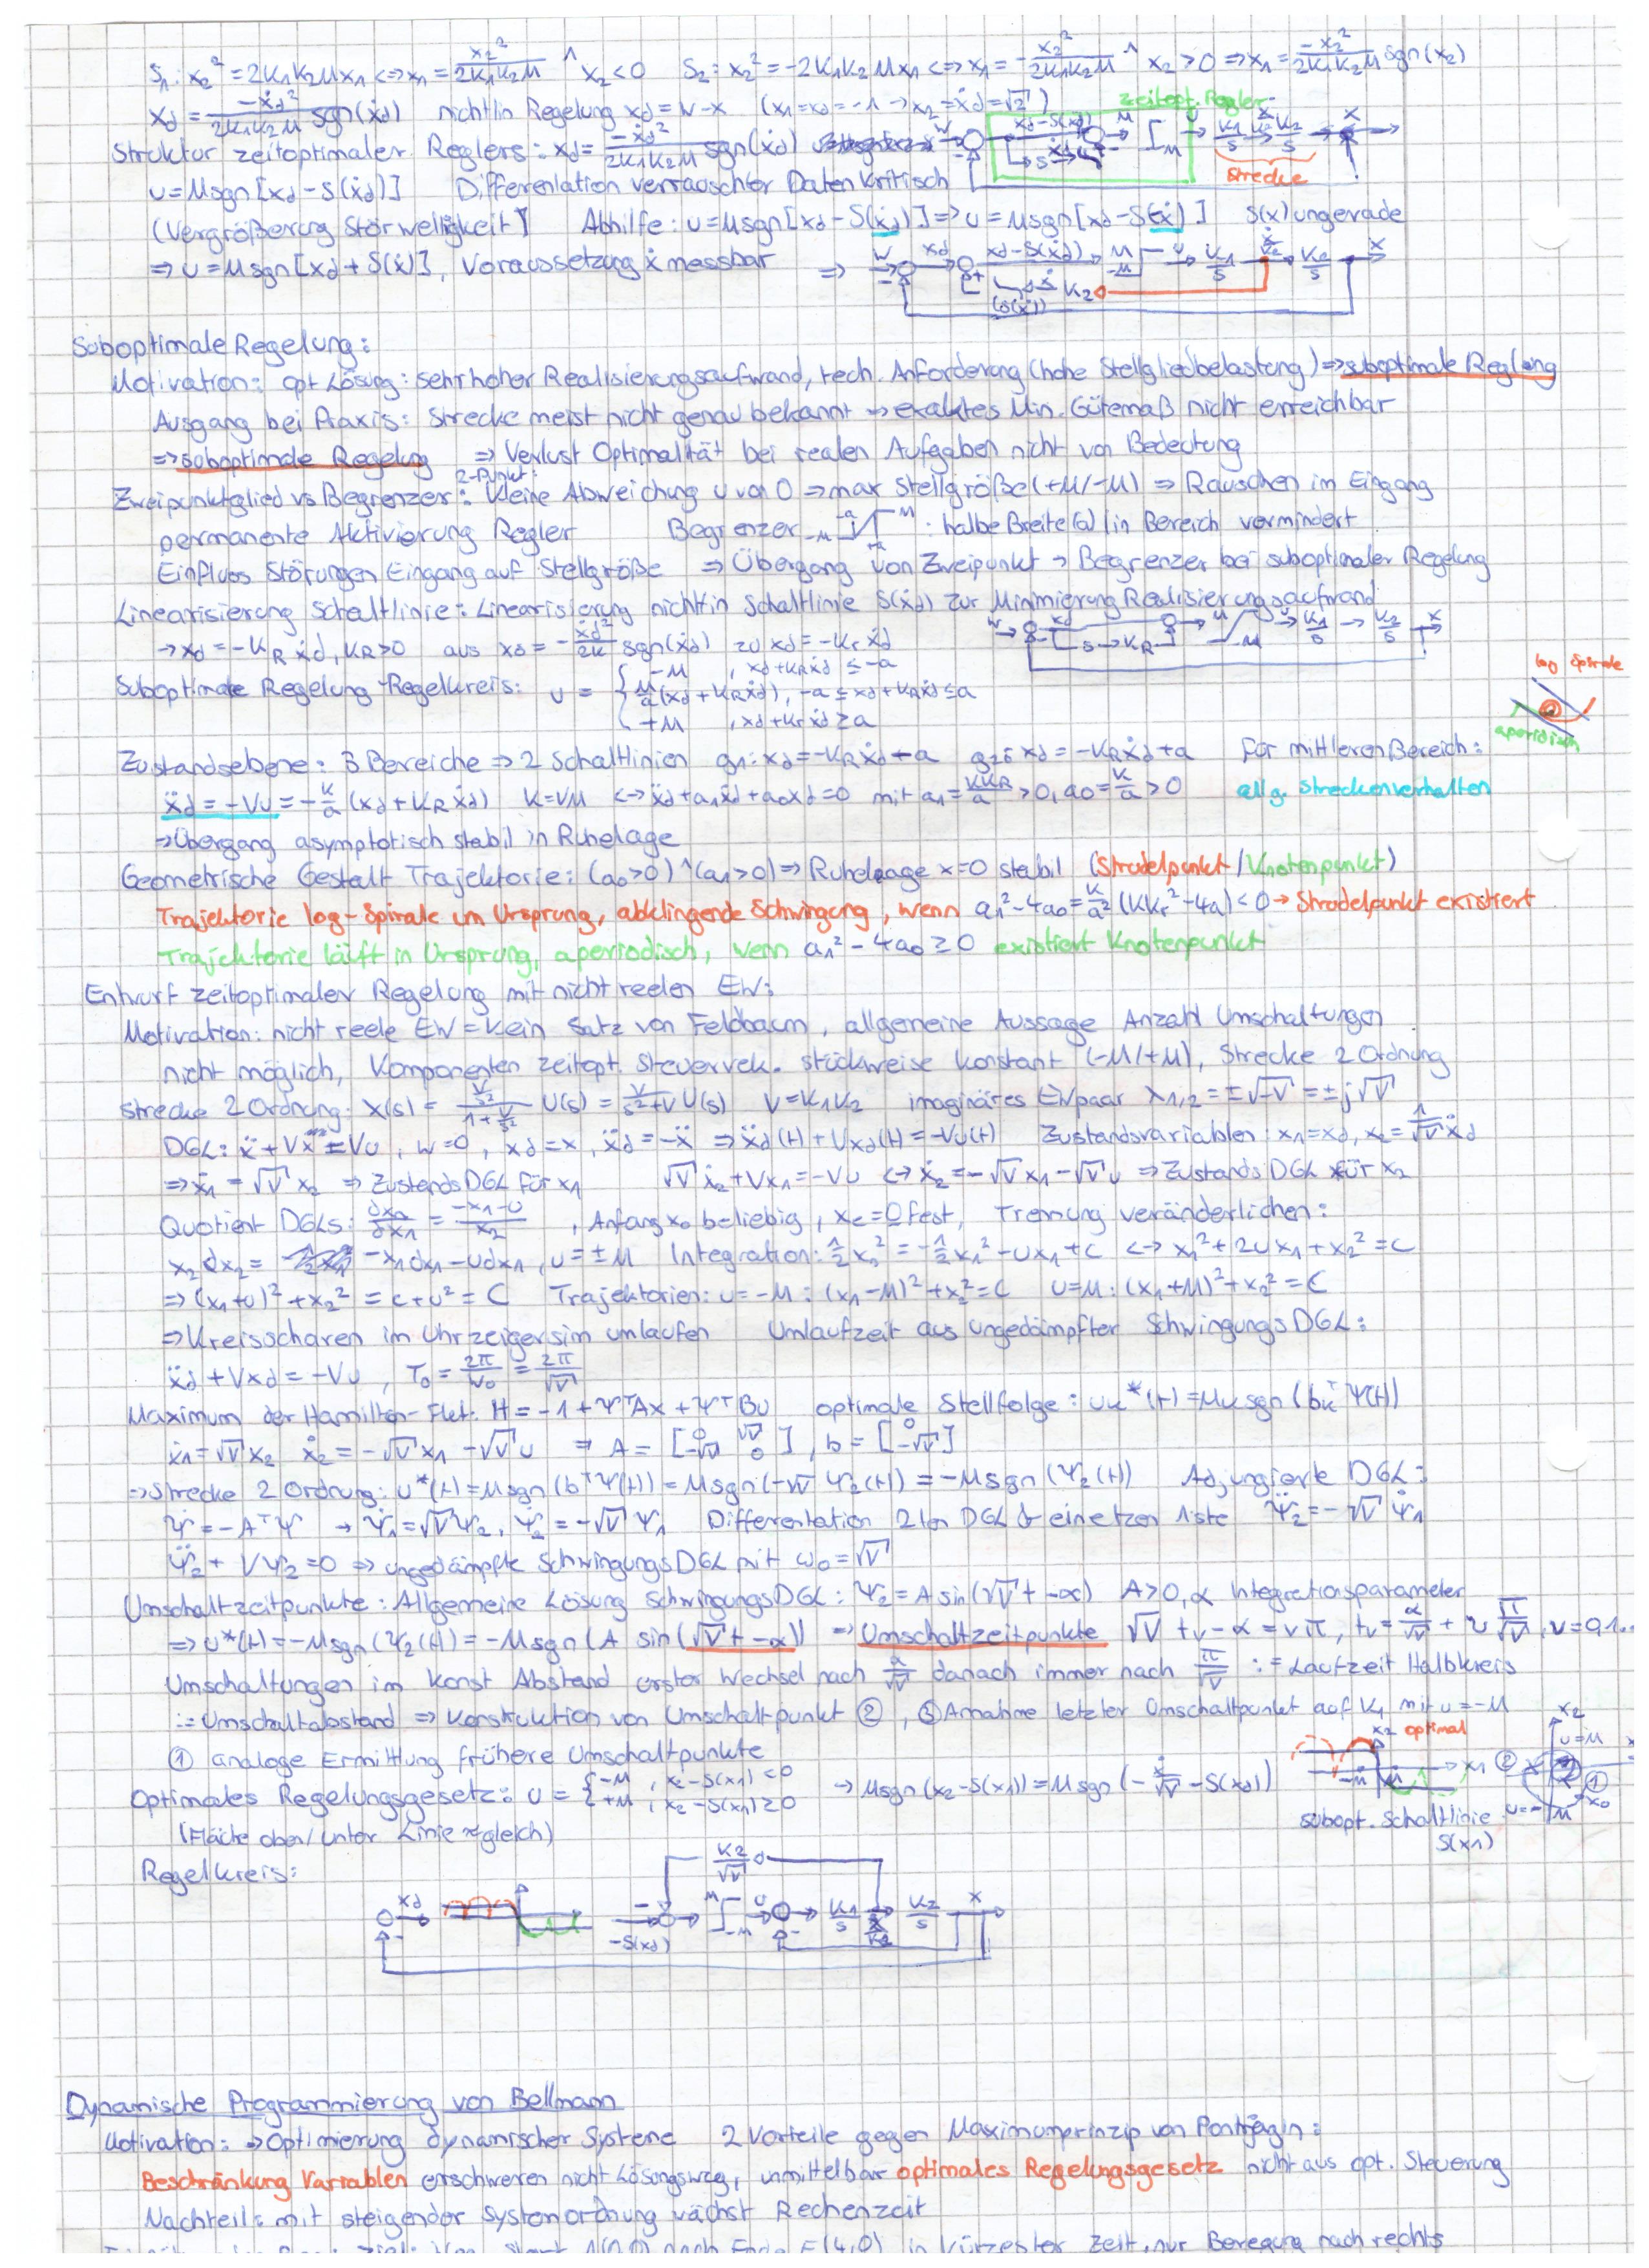 S₁: x₂² = 2K₁K₂Mx₁ <=> x₁ = x₂²/(2K₁K₂M) ^ x₂<0   S₂: x₂² = -2K₁K₂Mx₁ <=> x₁ = -x₂²/(2K₁K₂M) ^ x₂>0 => x₁ = -x₂²/(2K₁K₂M) sgn(x₂)
xd = -ẋd²/(2K₁K₂M) sgn(ẋd)   nichtlin Regelung xd = w-x   (x₁=xd=-1 → x₂=ẋd=√2)   zeitopt. Regler
Struktur zeitoptimaler Reglers: xd = -ẋd²/(2K₁K₂M) sgn(ẋd)
u = M sgn[xd - S(ẋd)]   Differentation verrauschter Daten kritisch   Strecke
(Vergrößerung Störwelligkeit)   Abhilfe: u = M sgn[xd - S(ẋd)] => u = M sgn[xd - S(-ẋ)]   S(x) ungerade
=> u = M sgn[xd + S(ẋ)], Voraussetzung ẋ messbar =>
Suboptimale Regelung:
Motivation: opt Lösung: sehr hoher Realisierungsaufwand, tech. Anforderung (hohe Stellgliedbelastung) => suboptimale Reglung
Ausgang bei Praxis: Strecke meist nicht genau bekannt → exaktes Min. Gütemaß nicht erreichbar
=> suboptimale Regelung => Verlust Optimalität bei realen Aufgaben nicht von Bedeutung
Zweipunktglied vs Begrenzer: 2-Punkt: kleine Abweichung u von 0 => max Stellgröße (+M/-M) => Rauschen im Eingang
permanente Aktivierung Regler   Begrenzer -M -a +a M : halbe Breite (a) (in Bereich vermindert
Einfluss Störungen Eingang auf Stellgröße => Übergang von Zweipunkt → Begrenzer bei suboptimaler Regelung
Linearisierung Schaltlinie: Linearisierung nichtlin Schaltlinie S(ẋd) zur Minimierung Realisierungsaufwand:
→ xd = -K_R ẋd, K_R>0   aus xd = -ẋd²/2K sgn(ẋd) zu xd = -Kr ẋd
Suboptimale Regelung - Regelkreis: u = { -M , xd+K_Rẋd ≤ -a
M/a (xd+K_Rẋd), -a ≤ xd+K_Rẋd ≤ a
+M , xd+Krẋd ≥ a
log Spirale
aperiodisch
Zustandsebene: 3 Bereiche => 2 Schaltlinien g₁: xd = -K_Rẋd - a   g₂: xd = -K_Rẋd + a   für mittleren Bereich:
ẍd = -Vu = -K/a (xd + K_R ẋd)   K=VM <-> ẍd + a₁ẋd + a₀xd = 0 mit a₁ = KK_R/a > 0, a₀ = K/a > 0   allg. Streckenverhalten
→ Übergang asymptotisch stabil in Ruhelage
Geometrische Gestalt Trajektorie: (a₀>0) ^ (a₁>0) => Ruhelage x=0 stabil (Strudelpunkt/Knotenpunkt)
Trajektorie log-Spirale um Ursprung, abklingende Schwingung, wenn a₁²-4a₀ = K/a² (KKr²-4a) < 0 → Strudelpunkt existiert
Trajektorie läuft in Ursprung, aperiodisch, wenn a₁²-4a₀ ≥ 0 existiert Knotenpunkt
Entwurf zeitoptimaler Regelung mit nicht reelen EW:
Motivation: nicht reele EW = kein Satz von Feldbaum, allgemeine Aussage Anzahl Umschaltungen
nicht möglich, Komponenten zeitopt. Steuervek. stückweise konstant (-M/+M), Strecke 2 Ordnung
Strecke 2 Ordnung: X(s) = (V/s²)/(1+V/s²) U(s) = V/(s²+V) U(s)   V=K₁K₂   imaginäres EWpaar λ₁,₂ = ±√-V = ±j√V
DGL: ẍ + Vx = Vu, w=0, xd=x, ẍd=-ẍ => ẍd(t) + Vxd(t) = -Vu(t)   Zustandsvariablen: x₁=xd, x₂=1/√V ẋd
=> ẋ₁ = √V x₂ => Zustands DGL für x₁   √V ẋ₂ + Vx₁ = -Vu <-> ẋ₂ = -√V x₁ - √V u => Zustands DGL für x₂
Quotient DGLs: ∂x₂/∂x₁ = (-x₁-u)/x₂ , Anfang x₀ beliebig, xe=0 fest, Trennung veränderlichen:
x₂dx₂ = -x₁dx₁ - udx₁, u=±M   Integration: ½x₂² = -½x₁² - ux₁ + c <-> x₁² + 2ux₁ + x₂² = c
=> (x₁+u)² + x₂² = c+u² = C   Trajektorien: u=-M: (x₁-M)²+x₂²=C   u=M: (x₁+M)²+x₂²=C
=> Kreisscharen im Uhrzeigersinn umlaufen   Umlaufzeit aus ungedämpfter Schwingungs DGL:
ẍd + Vxd = -Vu , T₀ = 2π/ω₀ = 2π/√V
Maximum der Hamilton-Fkt: H = -1 + ΨᵀAx + ΨᵀBu   optimale Stellfolge: uk*(t) = Mk sgn(bkᵀΨ(t))
ẋ₁ = √V x₂   ẋ₂ = -√V x₁ - √V u => A = [0 √V -√V 0], b = [0 -√V]
=> Strecke 2 Ordnung: u*(t) = M sgn(bᵀΨ(t)) = M sgn(-√V Ψ₂(t)) = -M sgn(Ψ₂(t))   Adjungierte DGL:
Ψ̇ = -AᵀΨ → Ψ̇₁ = √VΨ₂, Ψ̇₂ = -√VΨ₁   Differentation 2ten DGL & einetzen 1ste Ψ̈₂ = -√V Ψ̇₁
Ψ̈₂ + VΨ₂ = 0 => ungedämpfte Schwingungs DGL mit ω₀ = √V
Umschaltzeitpunkte: Allgemeine Lösung Schwingungs DGL: Ψ₂ = A sin(√V t - α)   A>0, α Integrationsparameter
=> u*(t) = -M sgn(Ψ₂(t)) = -M sgn(A sin(√V t - α)) => Umschaltzeitpunkte √V tv - α = vπ, tv = α/√V + v π/√V, v=0,1..
Umschaltungen im konst Abstand erster Wechsel nach α/√V danach immer nach π/√V := Laufzeit Halbkreis
:= Umschaltabstand => Konstruktion von Umschaltpunkt ②, ③ Annahme letzter Umschaltpunkt auf K₁ mit u=-M
① analoge Ermittlung frühere Umschaltpunkte   x₂ optimal
Optimales Regelungsgesetz: u = { -M , x₂-S(x₁) < 0   +M , x₂-S(x₁) ≥ 0 → M sgn(x₂-S(x₁)) = M sgn(-ẋ/√V - S(xd))
(Fläche ober/unter Linie ≈ gleich)   subopt. Schaltlinie S(x₁)
Regelkreis:
K2/√V
xd   -S(xd)   M -M   u   K1/s   ẋ/K2   K2/s   x
Dynamische Programmierung von Bellmann
Motivation: → Optimierung dynamischer Systeme   2 Vorteile gegen Maximumprinzip von Pontrjagin:
Beschränkung Variablen erschweren nicht Lösungsweg, unmittelbar optimales Regelungsgesetz nicht aus opt. Steuerung
Nachteil: mit steigender Systemordnung wächst Rechenzeit